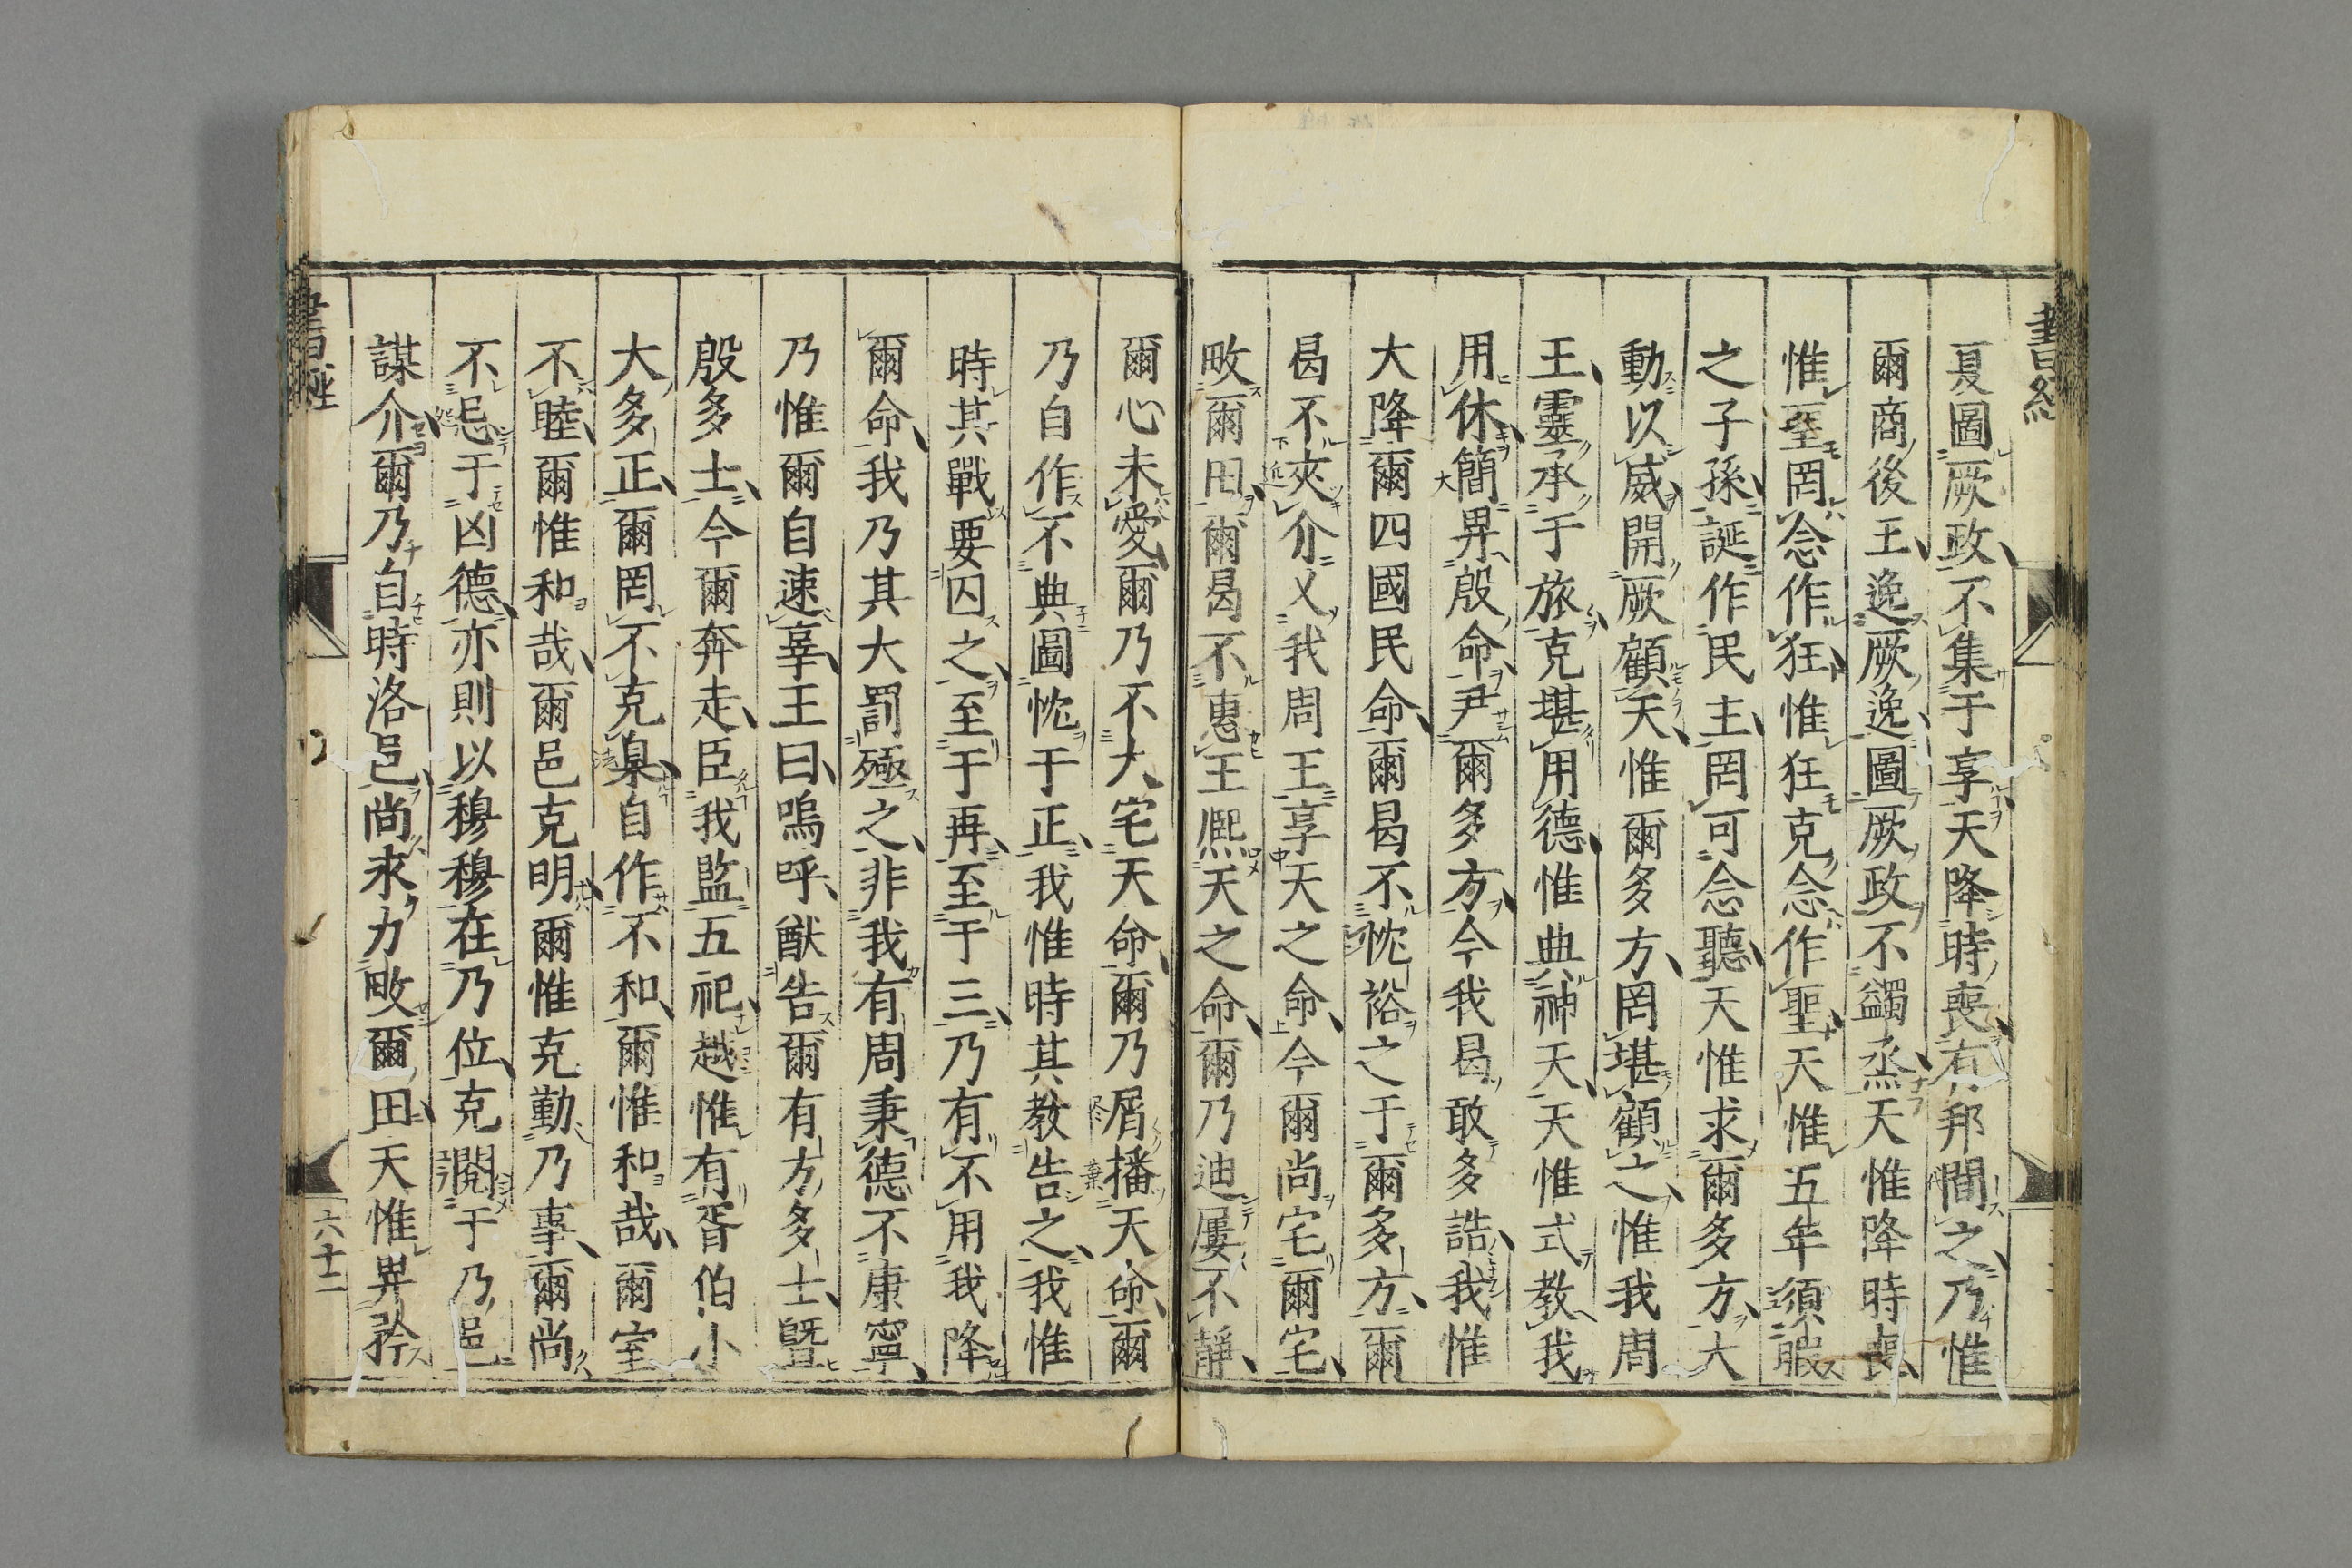 書經
夏圖厥政不集于享天降時喪有邦間之乃惟
爾商後王逸厥逸圖厥政不蠲烝天惟降時喪
惟聖罔念作狂惟狂克念作聖天惟五年須暇
之子孫誕作民主罔可念聽天惟求爾多方大
動以威開厥顧天惟爾多方罔堪顧之惟我周
王靈承于旅克堪用德惟典神天天惟式教我
用休簡畀殷命尹爾多方今我曷敢多誥我惟
大降爾四國民命爾曷不忱裕之于爾多方爾
曷不夾介乂我周王享天之命今爾尚宅爾宅
畋爾田爾曷不惠王熙天之命爾乃迪屢不靜
爾心未愛爾乃不大宅天命爾乃屑播天命爾
乃自作不典圖忱于正我惟時其教告之我惟
時其戰要囚之至于再至于三乃有不用我降
爾命我乃其大罰殛之非我有周秉德不康寧
乃惟爾自速辜王曰嗚呼猷告爾有方多士暨
殷多士今爾奔走臣我監五祀越惟有胥伯小
大多正爾罔不克臬自作不和爾惟和哉爾室
不睦爾惟和哉爾邑克明爾惟克勤乃事爾尚
不忌于凶德亦則以穆穆在乃位克閱于乃邑
謀介爾乃自時洛邑尚永力畋爾田天惟畀矜
書經
六十二